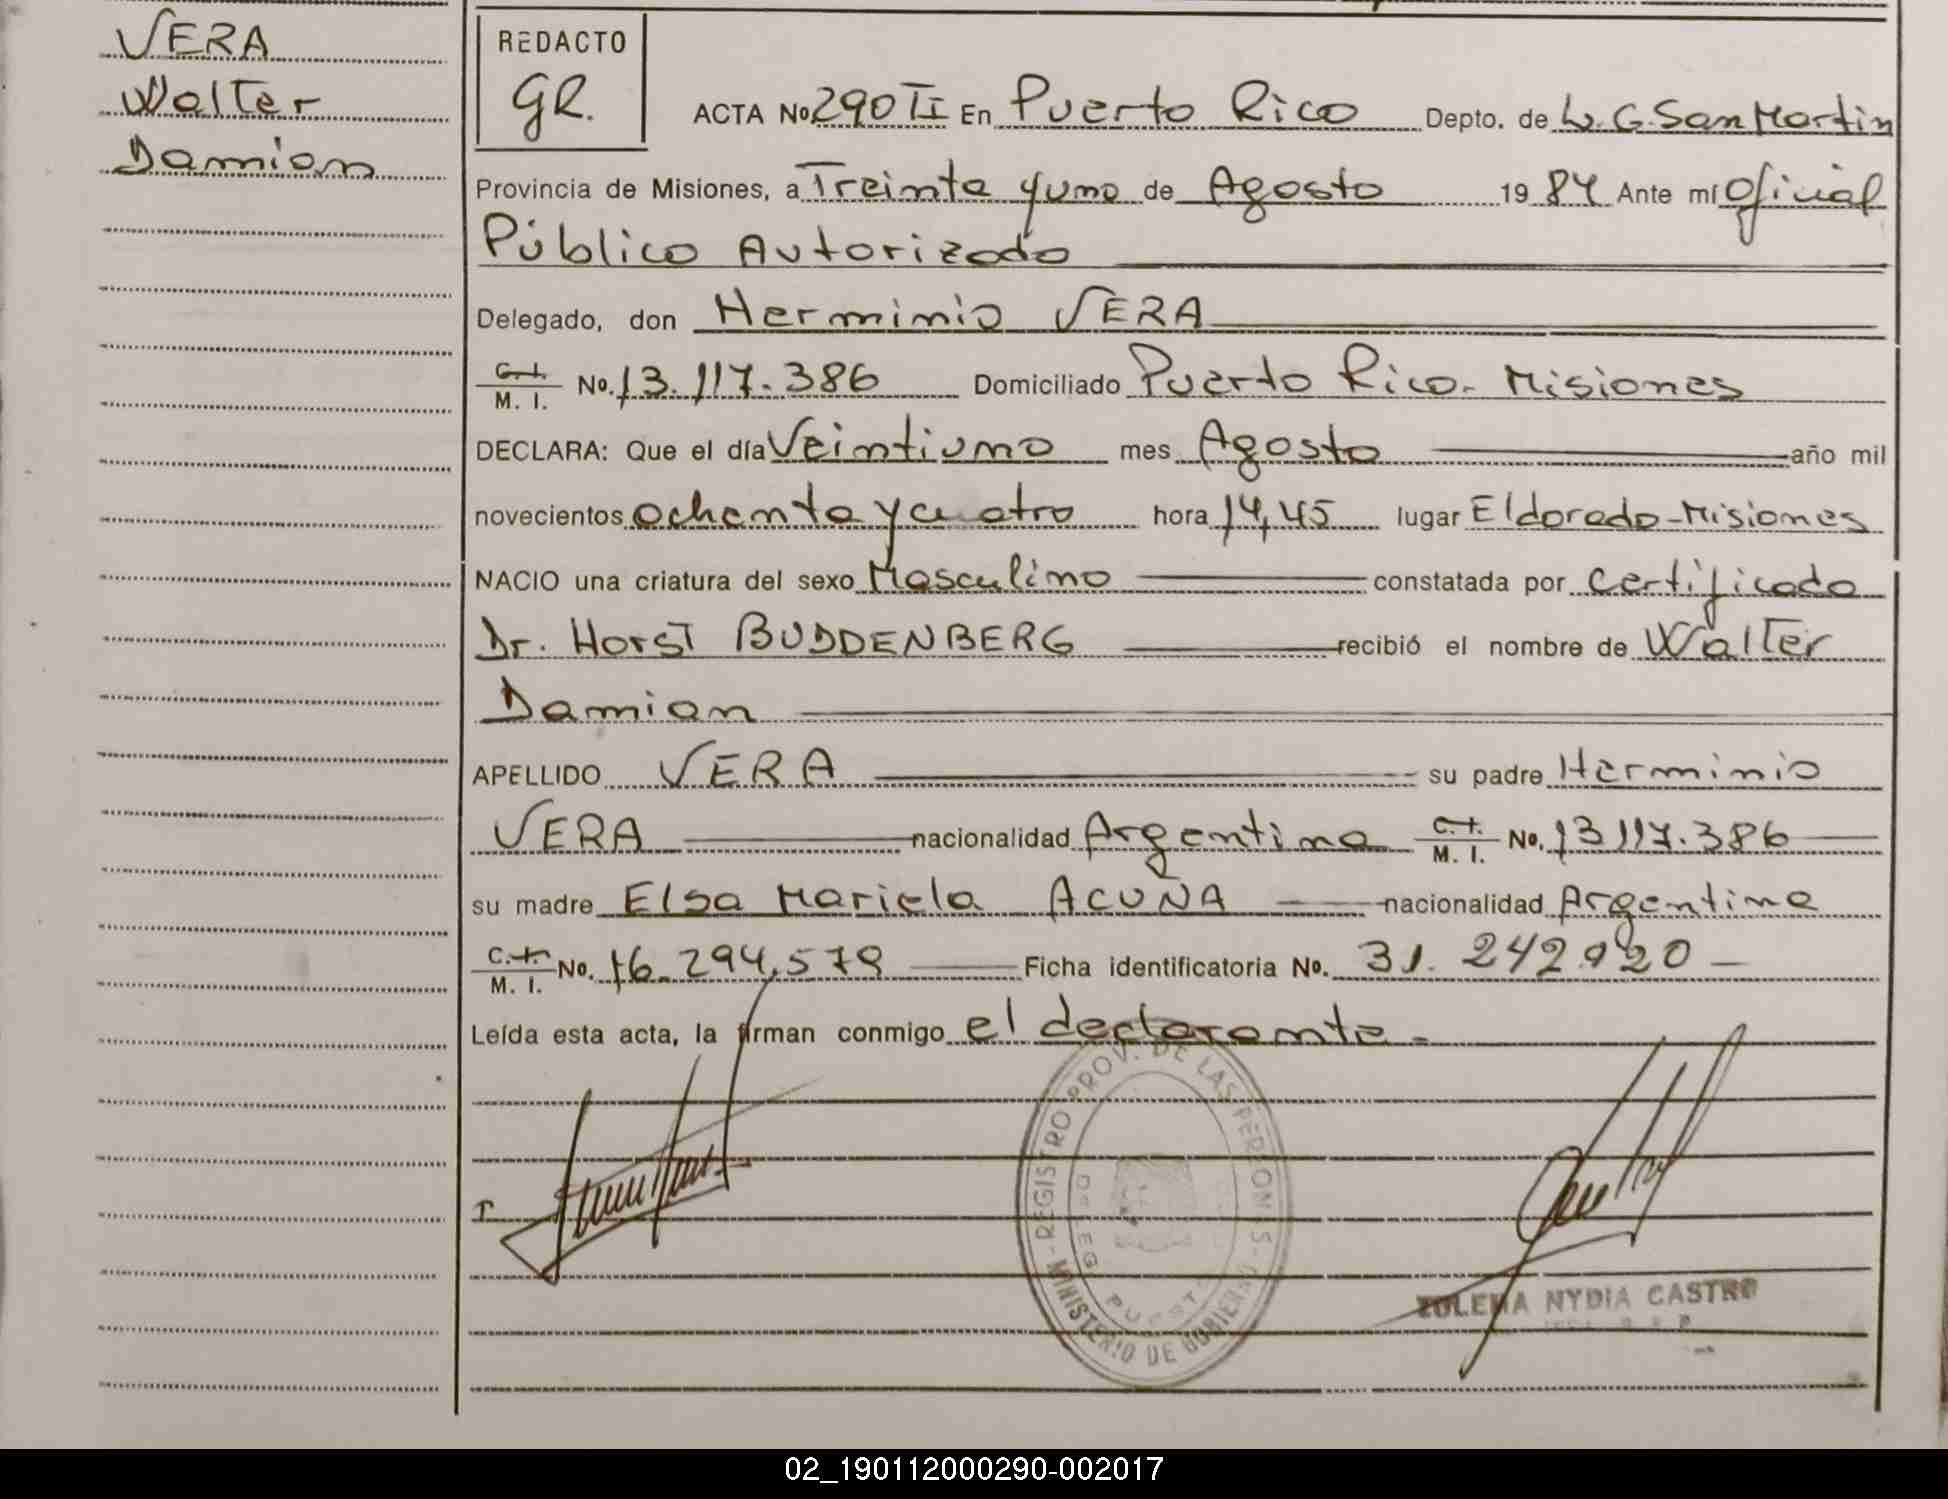 VERA
Walter
Damian
REDACTO
GR.
ACTA No 290 TI En Puerto Rico Depto. de L. G. San Martin
Provincia de Misiones, a Treinta y uno de Agosto 19 84 Ante mí Oficial
Público Autorizado
Delegado, don Herminio VERA
C. I.
M. I. No. 13.117.386 Domiciliado Puerto Rico - Misiones
DECLARA: Que el día Veintiuno mes Agosto año mil
novecientos ochenta y cuatro hora 14,45 lugar Eldorado - Misiones
NACIO una criatura del sexo Masculino constatada por certificado
Dr. Horst BUDDENBERG recibió el nombre de Walter
Damian
APELLIDO VERA su padre Herminio
VERA nacionalidad Argentina C. I.
M. I. No. 13.117.386
su madre Elsa Mariela ACUÑA nacionalidad Argentina
C. I.
M. I. No. 16.294.579 Ficha identificatoria No. 31.242.920
Leída esta acta, la firman conmigo el declarante.
REGISTRO PROV. DE LAS PERSONAS - MINISTERIO DE GOBIERNO
DELEG PUERTO
ZULEMA NYDIA CASTRO
02_190112000290-002017